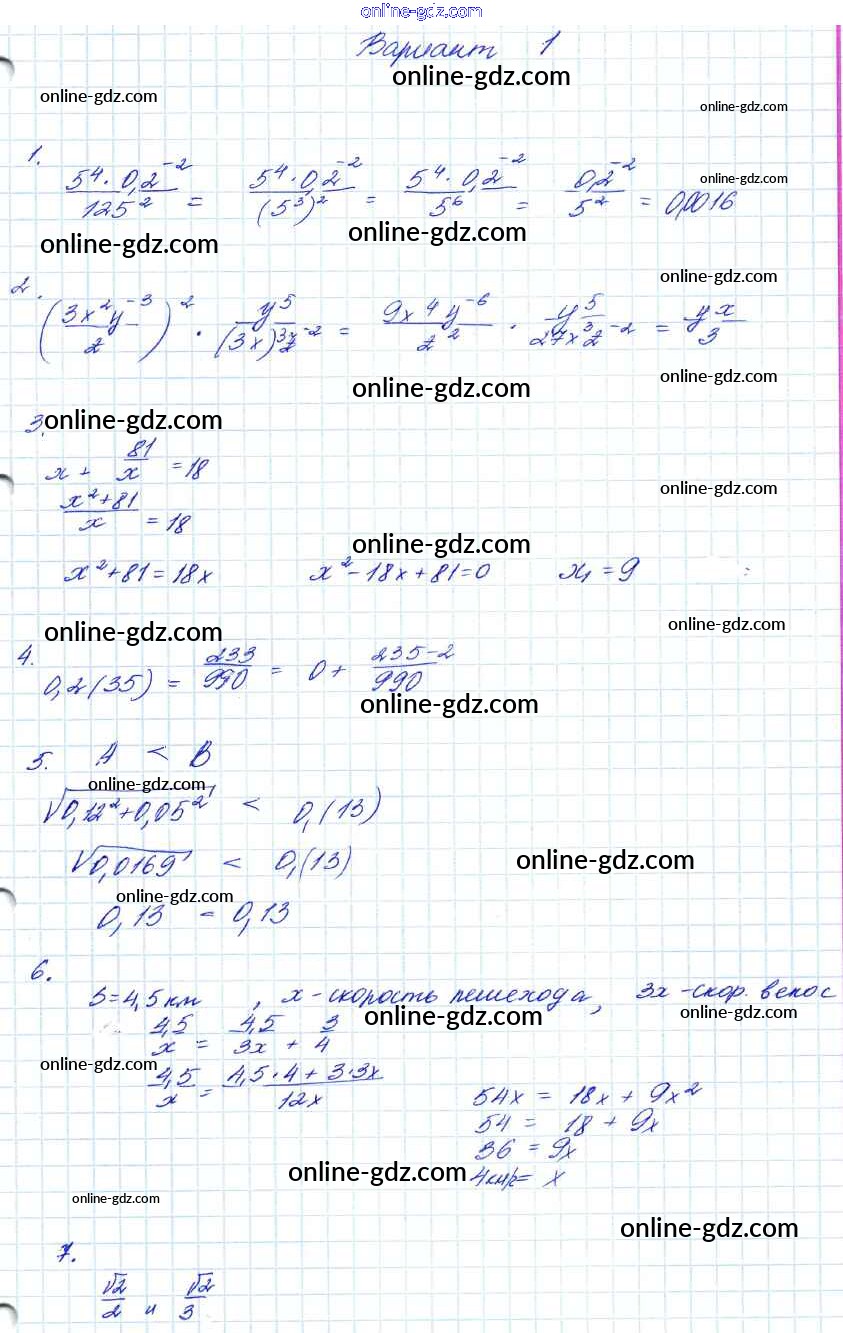 online-gdz.com
Вариант 1
online-gdz.com
online-gdz.com
online-gdz.com
1.
5⁴·0,2⁻² / 125² = 5⁴·0,2⁻² / (5³)² = 5⁴·0,2⁻² / 5⁶ = 0,2⁻² / 5² = 0,0016
online-gdz.com
online-gdz.com
online-gdz.com
online-gdz.com
2.
(3x²y⁻³ / z)² · y⁵ / (3x)³z⁻² = 9x⁴y⁻⁶ / z² · y⁵ / 27x³z⁻² = yx / 3
online-gdz.com
online-gdz.com
3. online-gdz.com
x + 81/x = 18
online-gdz.com
(x²+81)/x = 18
online-gdz.com
x²+81=18x x²-18x+81=0 x₁=9
online-gdz.com
online-gdz.com
4.
0,2(35) = 233/990 = 0 + (235-2)/990
online-gdz.com
5. A < B
online-gdz.com
√(0,12²+0,05²) < 0,(13)
√0,0169 < 0,(13)
online-gdz.com
online-gdz.com
0,13 = 0,13
6.
S=4,5км, x-скорость пешехода, 3x-скор. велос
online-gdz.com
online-gdz.com
4,5/x = 4,5/3x + 3/4
online-gdz.com
4,5/x = (4,5·4+3·3x)/12x
54x = 18x + 9x²
54 = 18 + 9x
36 = 9x
online-gdz.com
4км/ч = x
online-gdz.com
online-gdz.com
7.
√2/2 и √2/3